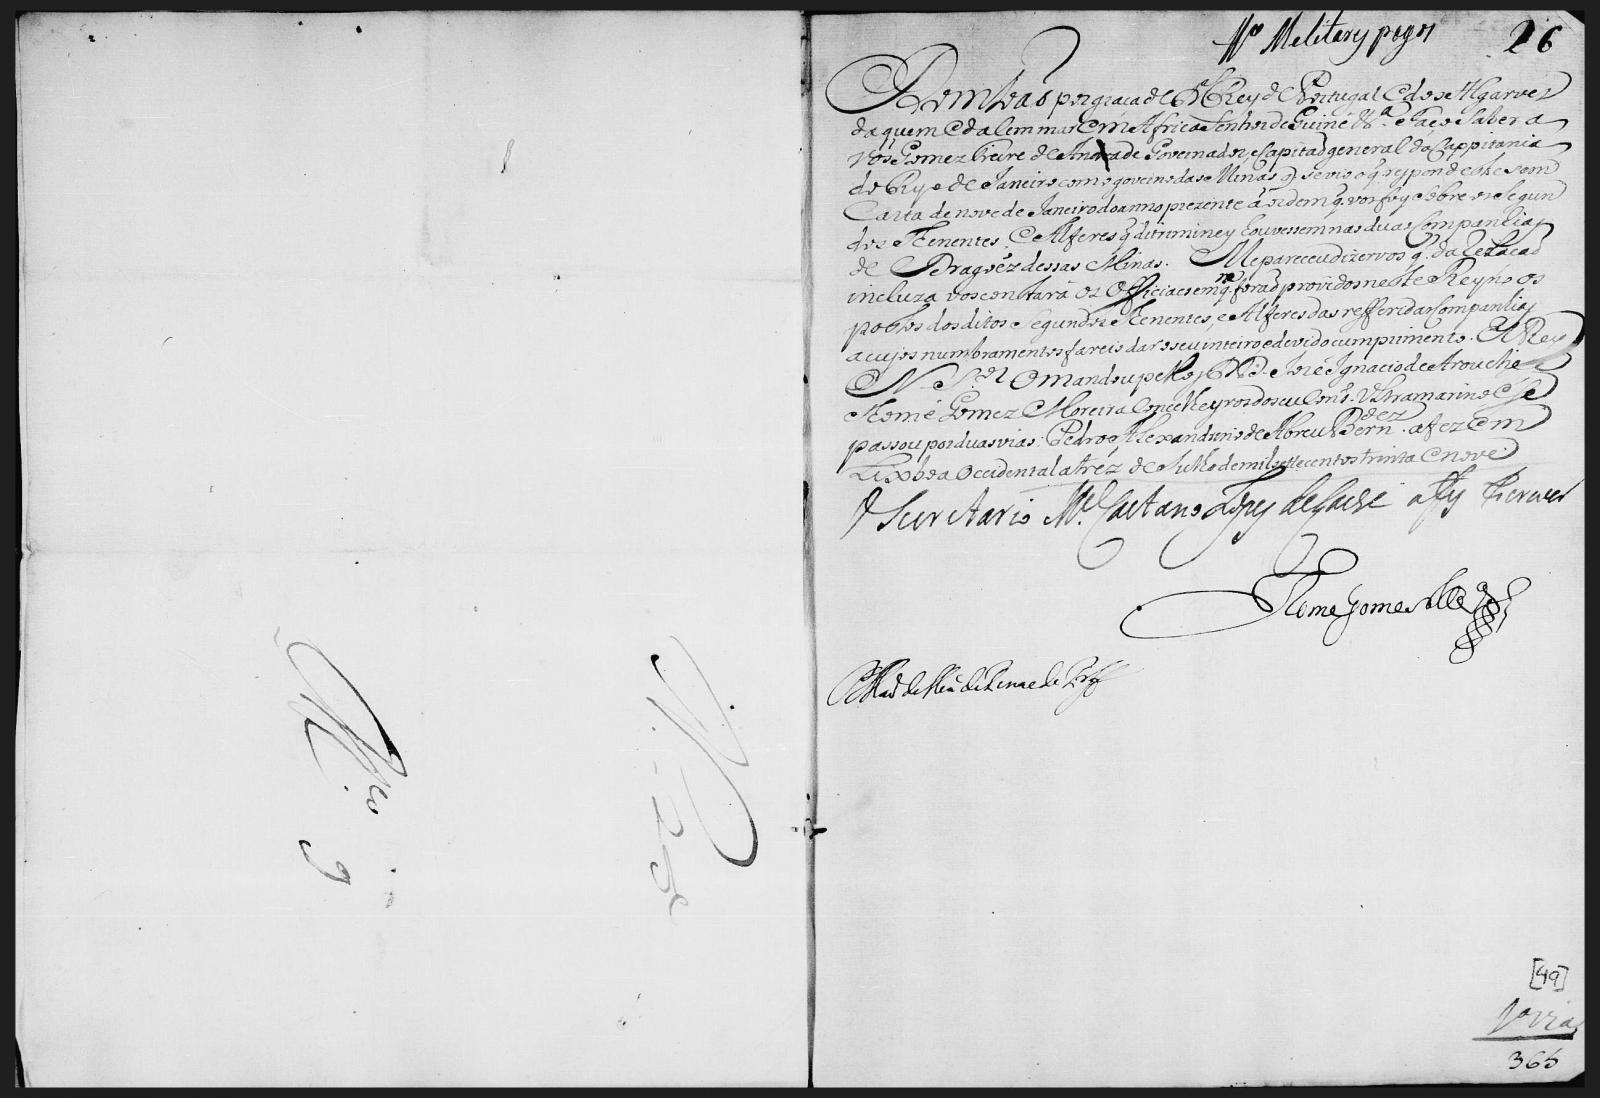 Militarys pagos
26
Dom Ioaõ por graça de Ds. Rey de Portugal e dos Algarves
daquem e dalem mar em Africa Senhor de Guiné &ª. Faço saber a
vós Gomez Freire de Andrade Governador e Capitaõ general da Cappitania
do Ryo de Janeiro com o governo das Minas q se vio o q respondestes em
Carta de nove de Janeiro do anno prezente á ordem q vos foy sobre os Segun
dos Tenentes, e Alferes q ditriminey houvessem nas duas Companhias
de Dragoẽz dessas Minas. Me pareceu dizervos q. da Relacaõ
incluza vos constará os Officiaes em q.m foraõ providos neste Reyno os
postos dos ditos Segundos Tenentes, e Alferes das refferidas Companhias
a cujos numbramentos fareis dar o seu inteiro e devido cumprimento. El Rey
N. S.or o mandou pello D. Ioze Ignacio de Arouche e
Thomé Gomez Moreira Conselheyros do seu Cons.º Ultramarino e se
passou por duas vias. Pedro Alexandrino de Abreu Bern.dez a fez em
Lixboa Occidental a tréz de Julho de mil settecentos trinta e nove.
O Secretario M.el Caetano Lopes de Lavre a fez escrever
Thome Gomes
N.
9
[49]
1ª via
365